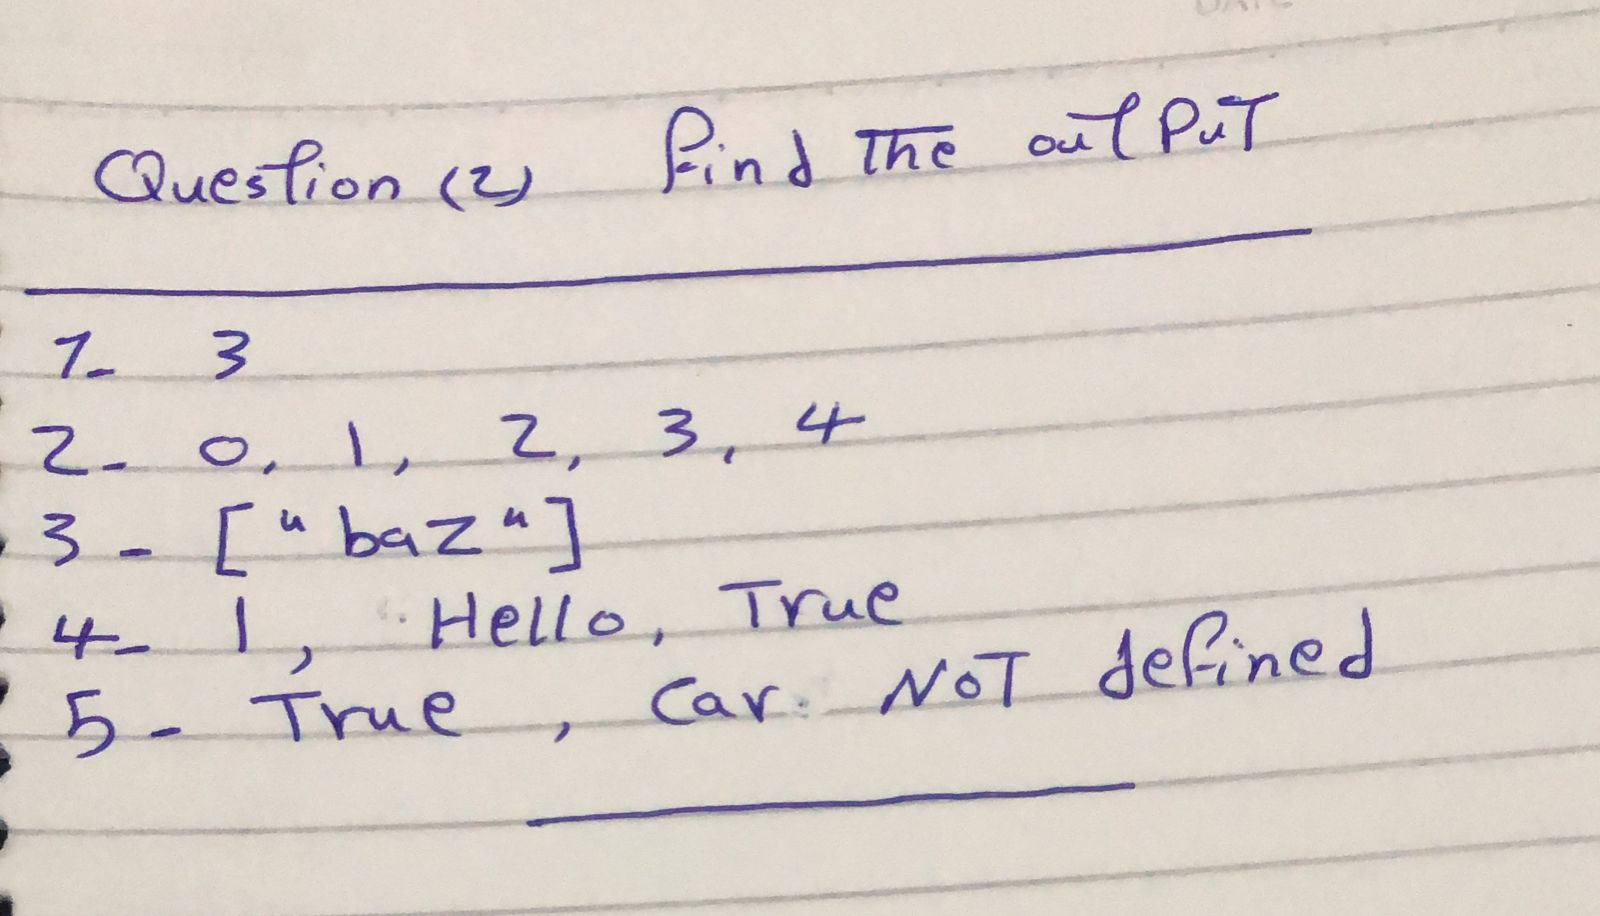 DATE
Question (2) Find The outPuT
1- 3
2- 0, 1, 2, 3, 4
3- ["baz"]
4- 1, Hello, True
5- True, Car NOT defined